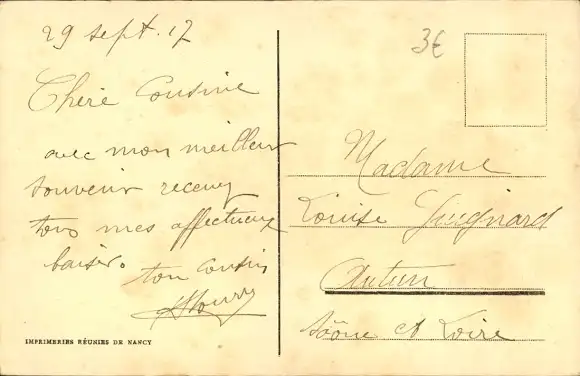 29 sept. 17
3€
Chère Cousine
avec mon meilleur
souvenir recevez
tous mes affectueux
baisers
ton cousin
Madame
Louise Guignard
Autun
Saône et Loire
IMPRIMERIES RÉUNIES DE NANCY